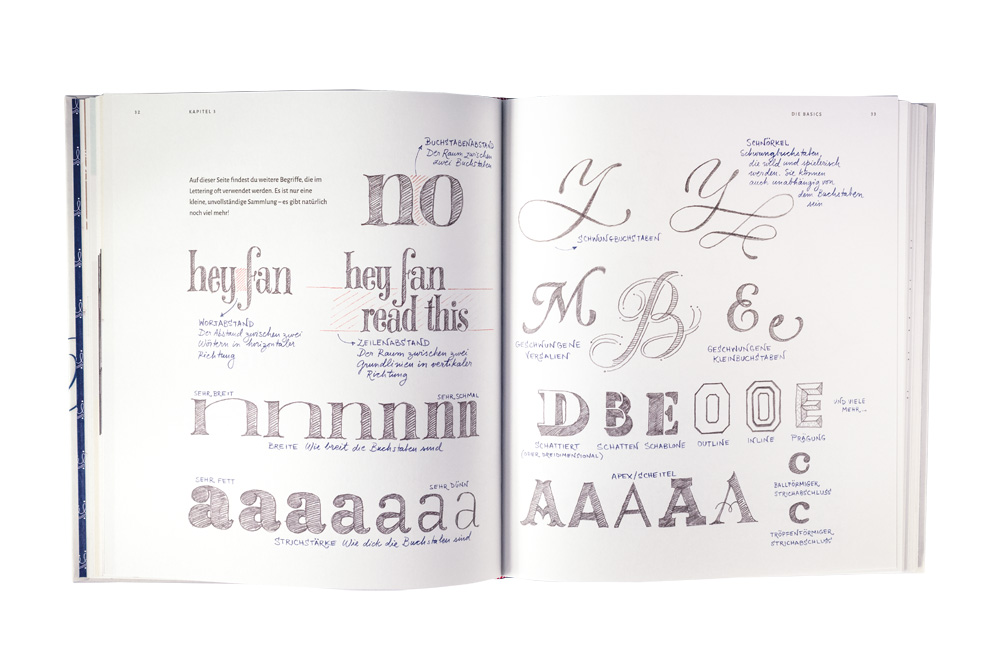 32
KAPITEL 1
Auf dieser Seite findest du weitere Begriffe, die im
Lettering oft verwendet werden. Es ist nur eine
kleine, unvollständige Sammlung – es gibt natürlich
noch viel mehr!
BUCHSTABENABSTAND
Der Raum zwischen
zwei Buchstaben
no
hey fan
WORTABSTAND
Der Abstand zwischen zwei
Wörtern in horizontaler
Richtung
hey fan
read this
ZEILENABSTAND
Der Raum zwischen zwei
Grundlinien in vertikaler
Richtung
SEHR BREIT
SEHR SCHMAL
nnnnnnn
BREITE Wie breit die Buchstaben sind
SEHR FETT
SEHR DÜNN
aaaaaaa
STRICHSTÄRKE Wie dick die Buchstaben sind
DIE BASICS
33
Y
SCHWUNGBUCHSTABEN
Y
SCHNÖRKEL
Schwungbuchstaben,
die wild und spielerisch
werden. Sie können
auch unabhängig von
dem Buchstaben
sein
M
GESCHWUNGENE
VERSALIEN
B
E e
GESCHWUNGENE
KLEINBUCHSTABEN
D B E O O E
SCHATTIERT
(ODER DREIDIMENSIONAL)
SCHATTEN
SCHABLONE
OUTLINE
INLINE
PRÄGUNG
UND VIELE
MEHR...
APEX/SCHEITEL
AAAAA
c
BALLFÖRMIGER
STRICHABSCHLUSS
c
TROPFENFÖRMIGER
STRICHABSCHLUSS